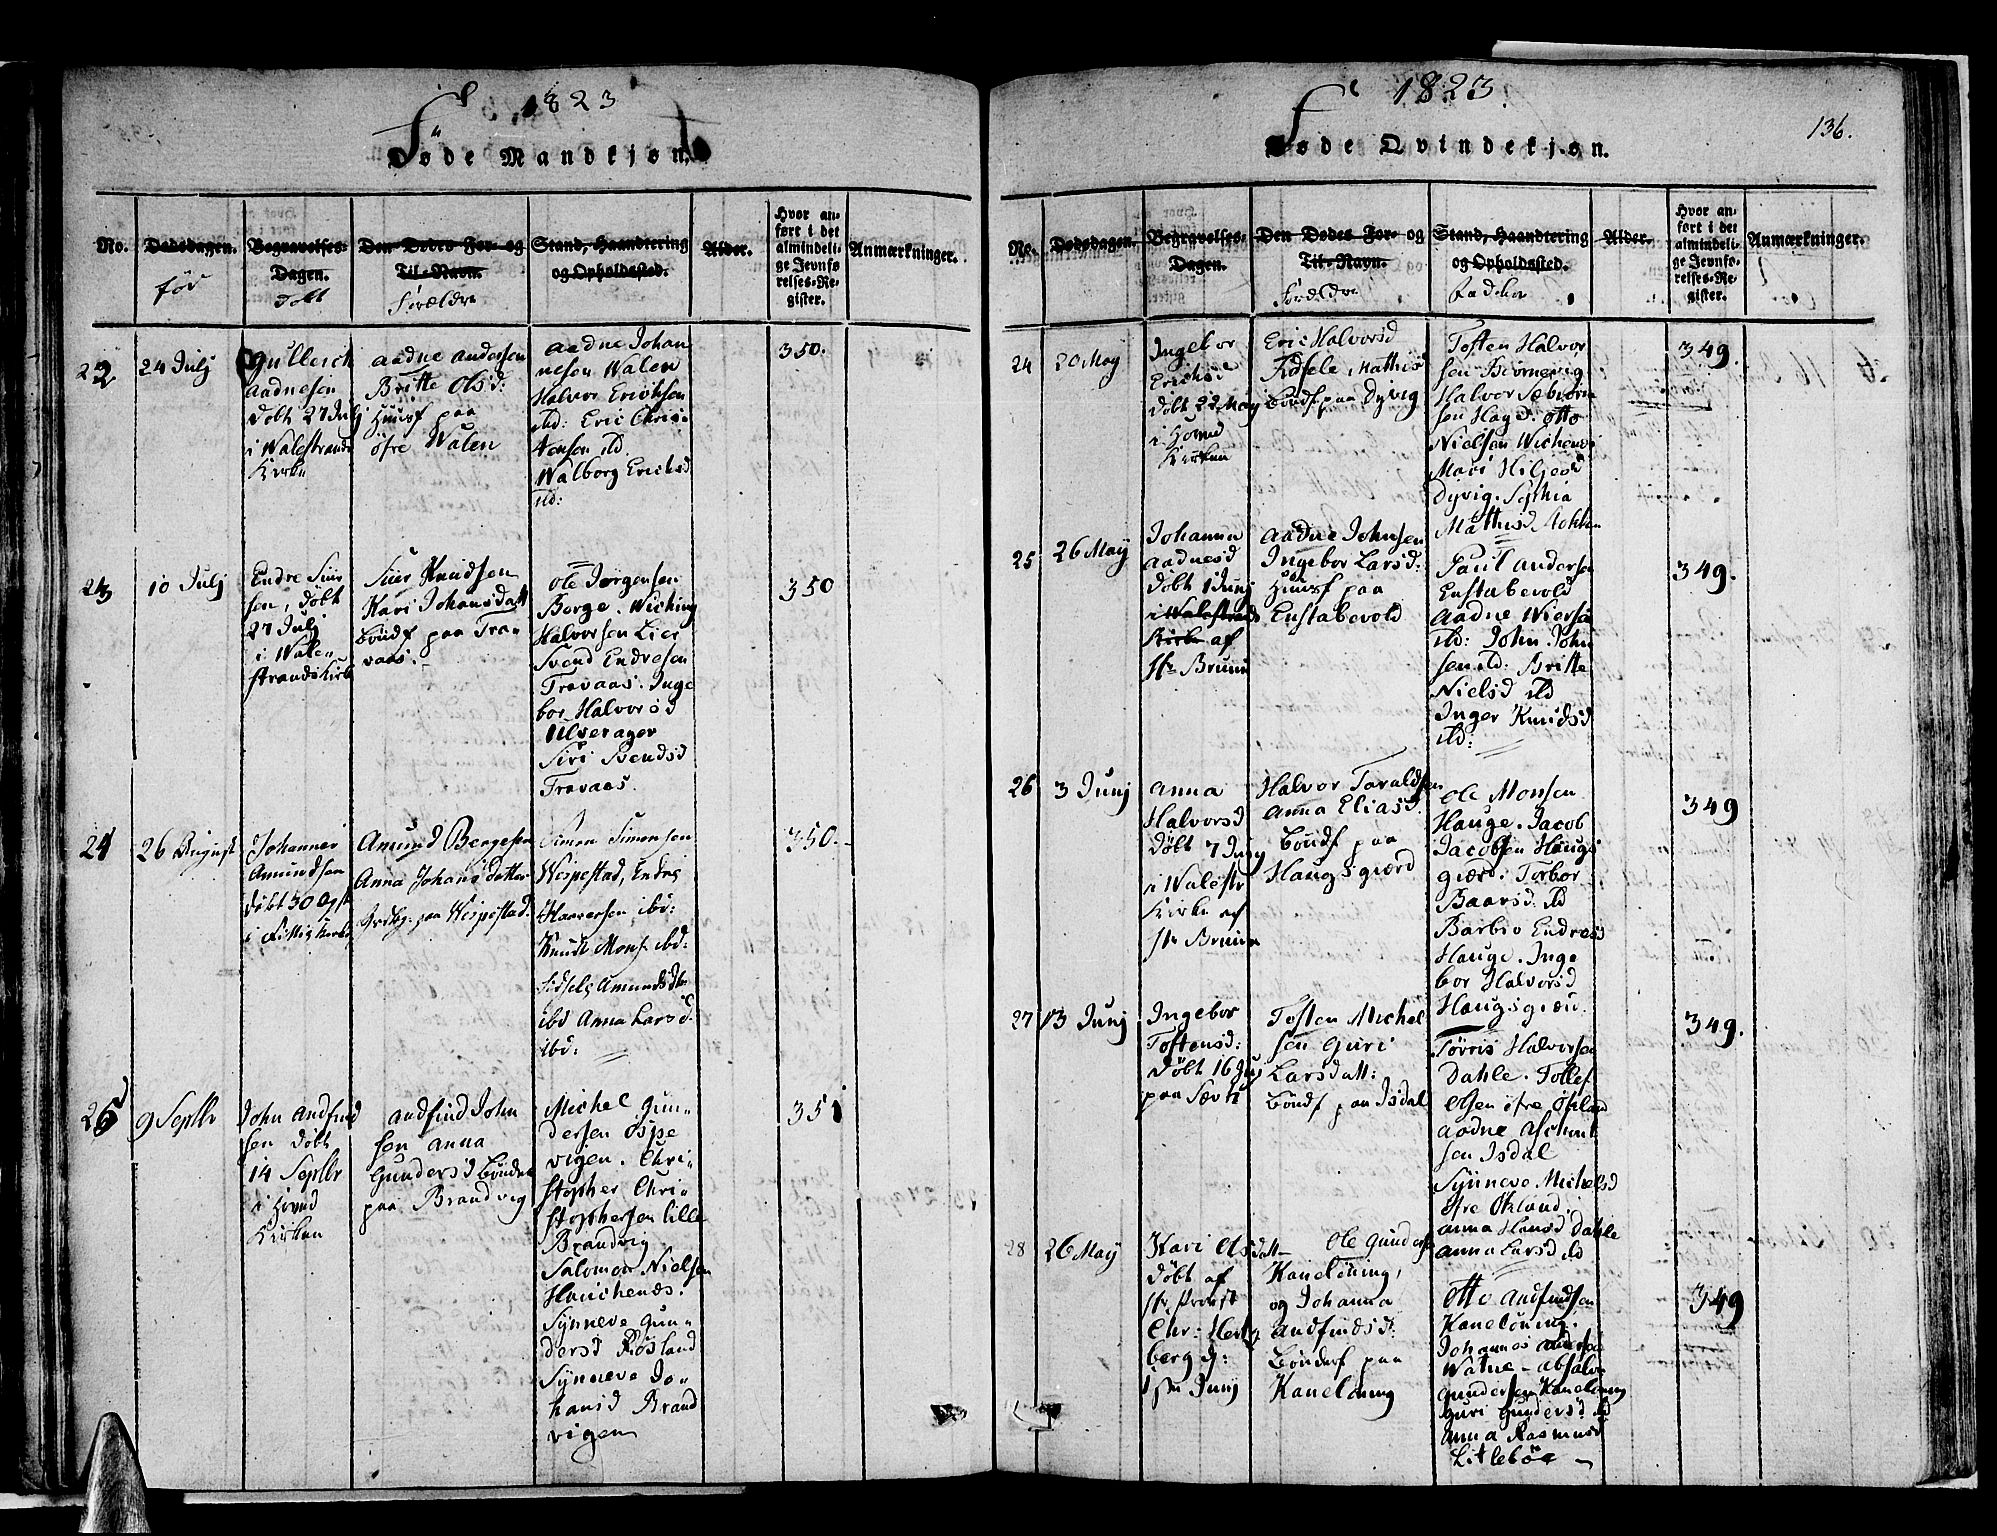 1823
Føde Mandkjøn.
No.
Dødsdagen.
Begravelses-
Dagen.
Den Dødes For- og
Til-Navn.
Stand, Haandtering
og Opholdssted.
Alder.
Hvor an-
ført i det
almindeli-
ge Jevnfø
relses-Re-
gister.
Anmærkninger.
fød
Døbt
Forældre
22
24 Julj
Gullerich
Aadnesen
døbt 27 Julj
i Walestrands
Kirke
Aadne Andersen
Britte Olsd:
Huusf paa
øfre Walen
Aadne Johan
nesen Walen
Halvor Erichsen
ibd: Eric Chris-
tensen ibd.
Walborg Erichsd
ibd:
350.
23
10 Julj
Endre Siur
sen, døbt
27 Julj
i Wale-
strands Kirke
Siur Knudsen
Kari Johansdatt
Bondf paa Tra-
vaas.
Ole Jørgensen
Borge. Wiching
Halvorsen Lier
Svend Endresen
Travaas. Inge
bor Halvorsd
Ulverager
Siri Bendsd
Travaas.
350
24
26 August
Johannes
Amundsen
døbt 30 Agst
i Kirke
Amund Børgesen
Anna Johansdatter
paa Wespestad.
Simon Simonsen
Wespestad, Endre
Haaversen ibd:
Knudt Mons. ibd:
Sidsele Amundsdtr
ibd Anna Larsd.
ibd:
350.
25
9 Septbr
John Andfind
sen døbt
14 Septbr
i Hovud
Kirken
Andfind John
sen Anna
Gundersd Bønder
paa Brandvig
Michel Gun-
dersen Ospe
vigen. Chri-
stopher Chri-
stophersen Lille
Brandvig
Salomon Nielsen
Hauchenæs.
Synneve Gun-
dersd Røsland
Synneve Jo-
hansd Brand
vigen
351
1823.
136.
Føde Qvindekjøn.
No.
Dødsdagen.
Begravelses-
Dagen.
Den Dødes For- og
Til-Navn.
Stand, Haandtering
og Opholdssted.
Alder.
Hvor an-
ført i det
almindeli-
ge Jevnfø-
relses-Re-
gister.
Anmærkninger.
Forældre
Faddere
24
20 May
Ingebor
Erichsd
døbt 22 May
i Hovud
Kirken
Eric Halvorsd
Zidsele Mathisd
Bondf paa Dyvig
Tosten Halvor
sen Biørnevig
Halvor Sæbiørn
sen Hage. Otto
Nielsen Wichenes
Mari Hiljesd
Dyvig. Sophia
Mathisd
349.
25
26 May
Johanna
Aadnesd
døbt 1 Junj
i Walestrands
Kirke af
Hr Bruun
Aadne Johnsen
Ingebor Larsd:
Huusf paa
Enstabevold
Paul Andersen
Enstabevold
Aadne Wiersen
ibd: John John
sen ibd: Britte
Nielsd ibd
Inger Knudsd
ibd:
349.
26
3 Junj
Anna
Halvorsd
døbt 7 Junj
i Walestr
Kirke af
Hr Bruun
Halvor Taraldsen
Anna Eliasd.
Bondf paa
Haugsgiærd
Ole Monsen
Hauge. Jacob
Jacobsen Haugs
giærd. Torbor
Baarsd. ibd
Barbro Endresd
Hauge. Inge
bor Halvorsd
Haugsgiær.
349
27
13 Junj
Ingebor
Tostensd:
døbt 16 Junj
paa
Tosten Michel
sen Guri
Larsdatt:
Bondf paa Isdal
Torris Halvorsen
Dahle. Tollef
Olsen øfre Økland
Aadne
sen Isdal
Synneve Michelsd
øfre Økland.
Anna Hansd Dahle
Anna Larsd ibd
349.
28
26 May
Kari Olsdatt
døbt af
Hr Provst
Chr: Hertz
berg d:
1ste Junj
Ole Gundersen
Kaneløning,
og Johanna
Andfindsd:
Bønderf paa
Kaneløning
Otto Andfindsen
Kaneløning.
Johannes Andersen
Watne - Absalon
Gundersen Kaneløning
Guri Gundersd ibd
Anna Rasmusd
Litlebøe
349